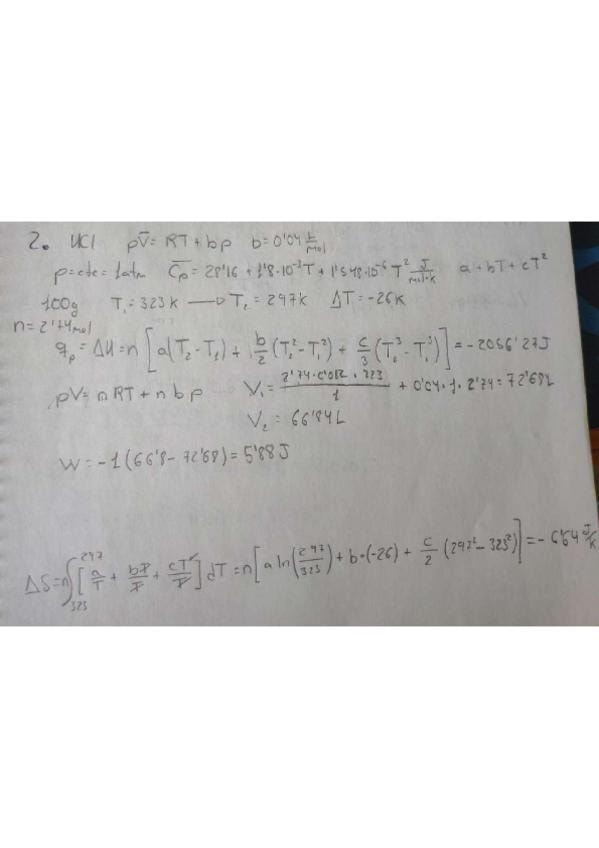 2. HCl pV̄ = RT + bp b = 0'04 L/mol
p = cte = 1atm C̄p = 28'16 + 1'8·10⁻³T + 1'548·10⁻⁶T² J/mol·k a + bT + cT²
100g T₁ = 323k → T₂ = 297k ΔT = -26k
n = 2'74mol
qp = ΔH = n[a(T₂ - T₁) + b/2(T₂² - T₁²) + c/3(T₂³ - T₁³)] = -2056'27J
pV = nRT + nbp V₁ = 2'74·0'082·323/1 + 0'04·1·2'74 = 72'68L
V₂ = 66'84L
W = -1(66'8 - 72'68) = 5'88J
ΔS = n∫₃₂₃²⁹⁷[a/T + bT/T + cT²/T]dT = n[a ln(297/323) + b·(-26) + c/2(297² - 323²)] = -6'64 J/k